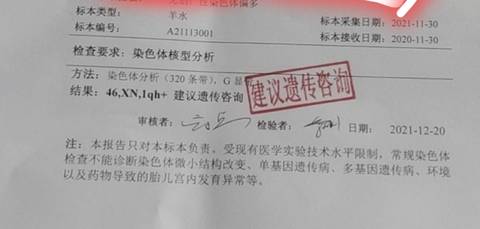 性染色体偏多
标本类型： 羊水 标本采集日期：2021-11-30
标本编号： A21113001 标本接收日期：2020-11-30
检查要求：染色体核型分析
方法：染色体分析（320 条带），G 显
结果：46,XN,1qh+ 建议遗传咨询
建议遗传咨询
审核者： 检验者： 日期： 2021-12-20
注：本报告只对本标本负责，受现有医学实验技术水平限制，常规染色体
检查不能诊断染色体微小结构改变、单基因遗传病、多基因遗传病、环境
以及药物导致的胎儿宫内发育异常等。